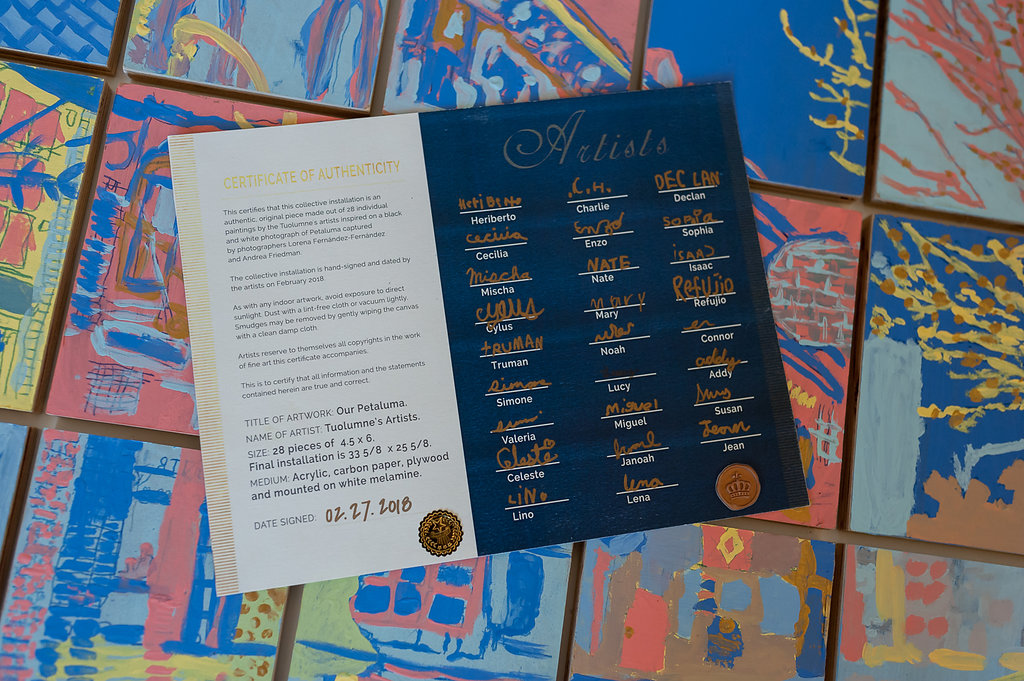 CERTIFICATE OF AUTHENTICITY
This certifies that this collective installation is an
authentic, original piece made out of 28 individual
paintings by the Tuolumne's artists inspired on a black
and white photograph of Petaluma captured
by photographers Lorena Fernández-Fernández
and Andrea Friedman.
The collective installation is hand-signed and dated by
the artists on February 2018.
As with any indoor artwork, avoid exposure to direct
sunlight. Dust with a lint-free cloth or vacuum lightly.
Smudges may be removed by gently wiping the canvas
with a clean damp cloth.
Artists reserve to themselves all copyrights in the work
of fine art this certificate accompanies.
This is to certify that all information and the statements
contained herein are true and correct.
TITLE OF ARTWORK: Our Petaluma.
NAME OF ARTIST: Tuolumne's Artists.
SIZE: 28 pieces of 4.5 x 6.
Final installation is 33 5/8 x 25 5/8.
MEDIUM: Acrylic, carbon paper, plywood
and mounted on white melamine.
DATE SIGNED: 02.27.2018
Artists
Heriberto
Heriberto
cecilia
Cecilia
Mischa
Mischa
cylus
Cylus
tRUMAN
Truman
simone
Simone
Valeria
Celeste
Celeste
LiNo
Lino
C.H.
Charlie
Enzo
Enzo
NATE
Nate
mary
Mary
Noah
Lucy
Miguel
Miguel
Janoah
Lena
Lena
DEC LAN
Declan
SOPhia
Sophia
ISAAC
Isaac
Refujio
Refujio
Connor
addy
Addy
Susan
Jean
Jean